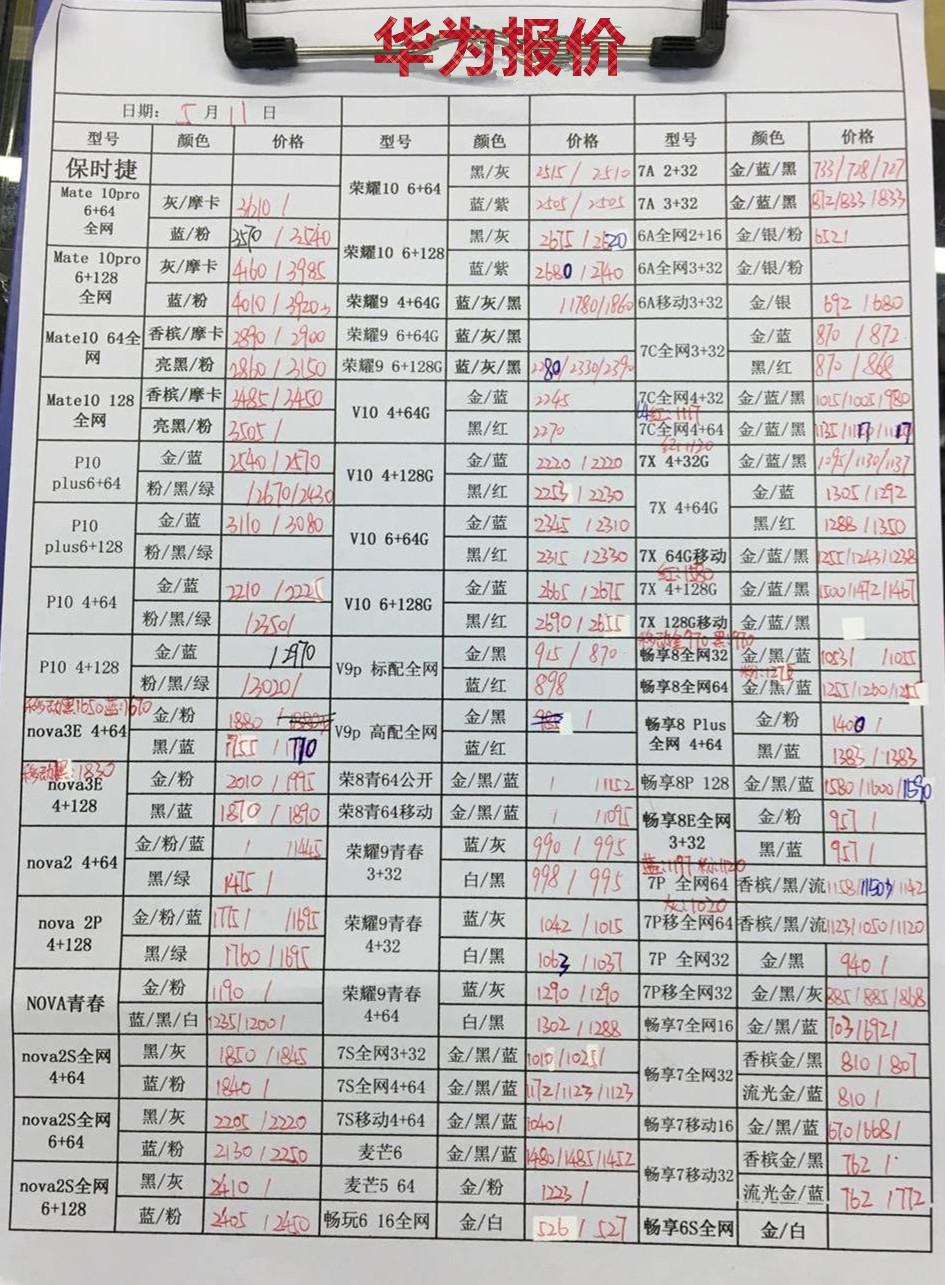 华为报价
日期: 5 月 11 日
型号 颜色 价格 型号 颜色 价格 型号 颜色 价格
保时捷 荣耀10 6+64 黑/灰 2515 / 2510 7A 2+32 金/蓝/黑 733/728/727
Mate 10pro 6+64 全网 灰/摩卡 / 蓝/紫 2505 / 2505 7A 3+32 金/蓝/黑 872/833/833
蓝/粉 3570 / 3540 荣耀10 6+128 黑/灰 2675 / 2620 6A全网2+16 金/银/粉 652/
Mate 10pro 6+128 全网 灰/摩卡 4160 / 3985 蓝/紫 2680 / 2740 6A全网3+32 金/银/粉
蓝/粉 4010 / 3920 荣耀9 4+64G 蓝/灰/黑 /1780/1860 6A移动3+32 金/银 692 / 680
Mate10 64全网 香槟/摩卡 2890 / 2900 荣耀9 6+64G 蓝/灰/黑 7C全网3+32 金/蓝 870 / 872
亮黑/粉 2860 / 3150 荣耀9 6+128G 蓝/灰/黑 2280/2330/2390 黑/红 870 / 868
Mate10 128全网 香槟/摩卡 3485 / 3450 V10 4+64G 金/蓝 2245 7C全网4+32 金/蓝/黑 1015/1005/980
红:1117
亮黑/粉 3505 / 黑/红 2270 7C全网4+64 金/蓝/黑
红:1120
P10 plus6+64 金/蓝 2540 / 2570 V10 4+128G 金/蓝 2220 / 2220 7X 4+32G 金/蓝/黑 1095/1130/1137
粉/黑/绿 /2670/2430 黑/红 2253 / 2230 7X 4+64G 金/蓝 1305 / 1292
P10 plus6+128 金/蓝 3110 / 3080 V10 6+64G 金/蓝 2345 / 2310 黑/红 1288 / 1350
粉/黑/绿 黑/红 2315 / 2330 7X 64G移动 金/蓝/黑 1255/1243/1238
红:1580
P10 4+64 金/蓝 2210 / 2225 V10 6+128G 金/蓝 2665 / 2675 7X 4+128G 金/蓝/黑 1500/1472/1467
粉/黑/绿 /2350/ 黑/红 2690 / 2655 7X 128G移动 金/蓝/黑
移动金970 黑:970
P10 4+128 金/蓝 / 2970 V9p 标配全网 金/黑 915 / 870 畅享8全网32 金/黑/蓝 1053/ /1055
粉:1275
粉/黑/绿 /3020/ 蓝/红 898 畅享8全网64 金/黑/蓝 1255/1260/1255
移动黑1650蓝:1610
nova3E 4+64 金/粉 1880 / V9p 高配全网 金/黑 / 畅享8 Plus 全网 4+64 金/粉 1400 /
黑/蓝 1755 / 1770 蓝/红 黑/蓝 1383 / 1383
移动黑:1830
nova3E 4+128 金/粉 2010 / 1995 荣8青64公开 金/黑/蓝 / /1152 畅享8P 128 金/黑/蓝 1580/1600/1590
黑/蓝 1870 / 1890 荣8青64移动 金/黑/蓝 / /1095 畅享8E全网 3+32 金/粉 957 /
nova2 4+64 金/粉/蓝 / /1445 荣耀9青春 3+32 蓝/灰 990 / 995 黑/蓝 957 /
蓝:1197 粉:1120
黑/绿 1475 / 白/黑 998 / 995 7P 全网64 香槟/黑/流 1158/1150/1142
灰:1020
nova 2P 4+128 金/粉/蓝 1775/ /1695 荣耀9青春 4+32 蓝/灰 1042 / 1015 7P移全网64 香槟/黑/流 1123/1050/1120
黑/绿 1760 / 1695 白/黑 1063 / 1037 7P 全网32 金/黑 940 /
NOVA青春 金/粉 1190 / 荣耀9青春 4+64 蓝/灰 1290 / 1290 7P移全网32 金/黑/灰 885/885/868
蓝/黑/白 1235/1200/ 白/黑 1302 / 1288 畅享7全网16 金/黑/蓝 703/692/
nova2S全网 4+64 黑/灰 1850 / 1845 7S全网3+32 金/黑/蓝 1010/1025/ 畅享7全网32 香槟金/黑 810 / 807
蓝/粉 1840 / 7S全网4+64 金/黑/蓝 1172/1123/1123 流光金/蓝 810 /
nova2S全网 6+64 黑/灰 2205 / 2220 7S移动4+64 金/黑/蓝 1040/ 畅享7移动16 金/黑/蓝 670/668/
蓝/粉 2130 / 2250 麦芒6 金/黑/蓝 1480/1485/1452 畅享7移动32 香槟金/黑 762 /
nova2S全网 6+128 黑/灰 2410 / 麦芒5 64 金/粉 1223 / 流光金/蓝 762 / 772
蓝/粉 2405 / 2450 畅玩6 16全网 金/白 526 / 527 畅享6S全网 金/白